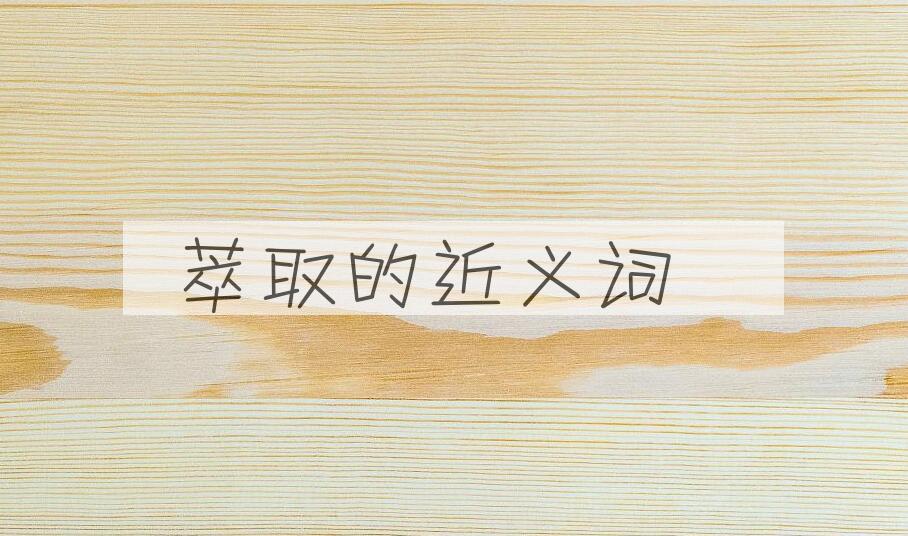 萃取的近义词